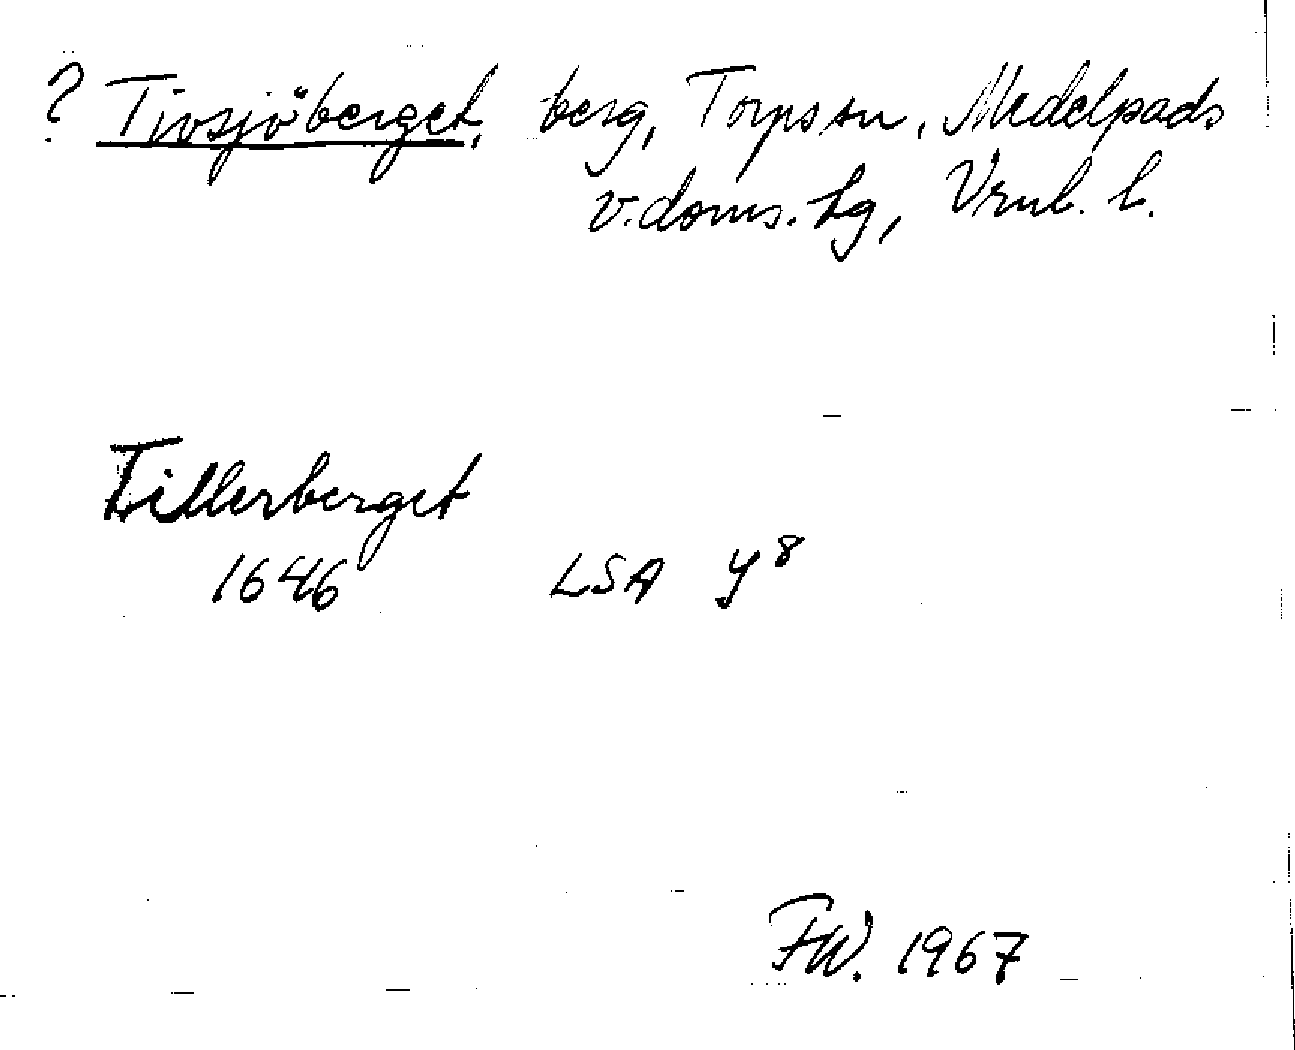 ? Tivsjöberget, berg, Torps sn, Medelpads
v. doms. hg, Vrnl. l.
Tillerberget
1646 LSA Y8
FW. 1967